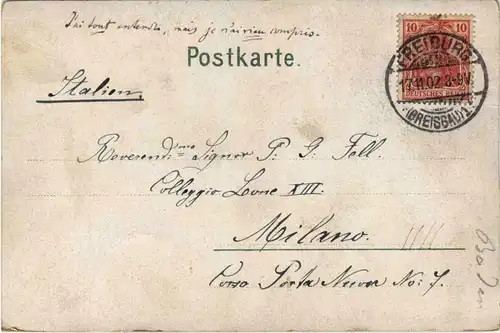 J'ai tout entendu, mais je n'ai rien compris.
Postkarte.
10 10
DEUTSCHES REICH
FREIBURG
11.02 8-9V.
(BREISGAU)
Italien
Reverendmo Signor P. G. Fell.
Colleggio Leone XIII
Milano.
Corso Porta Nuova No: 7.